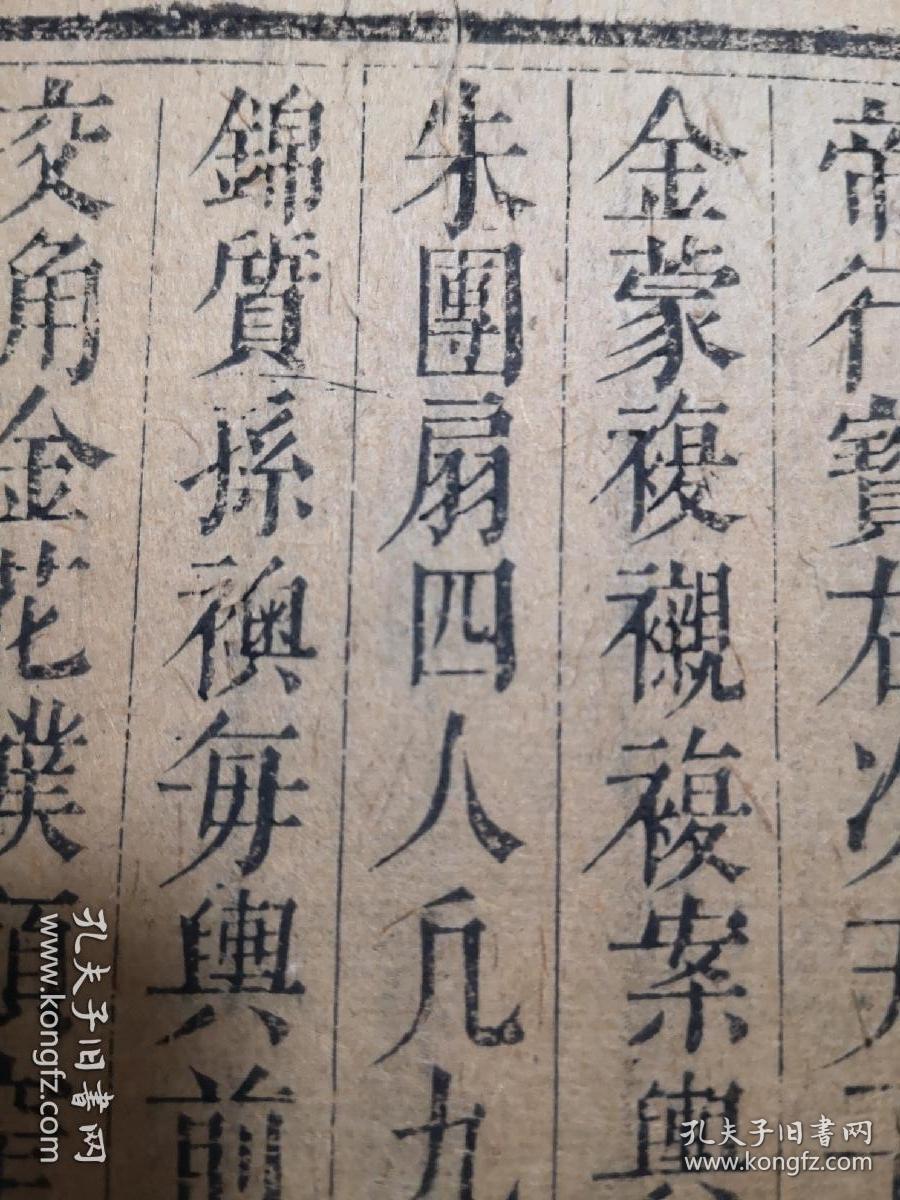 帝行寶右次天子
金蒙複襯複案輿
朱團扇四人凡九
錦質孫襖每輿前
交角金花幞頭
孔夫子旧书网
www.kongfz.com
孔夫子旧书网
www.kongfz.com